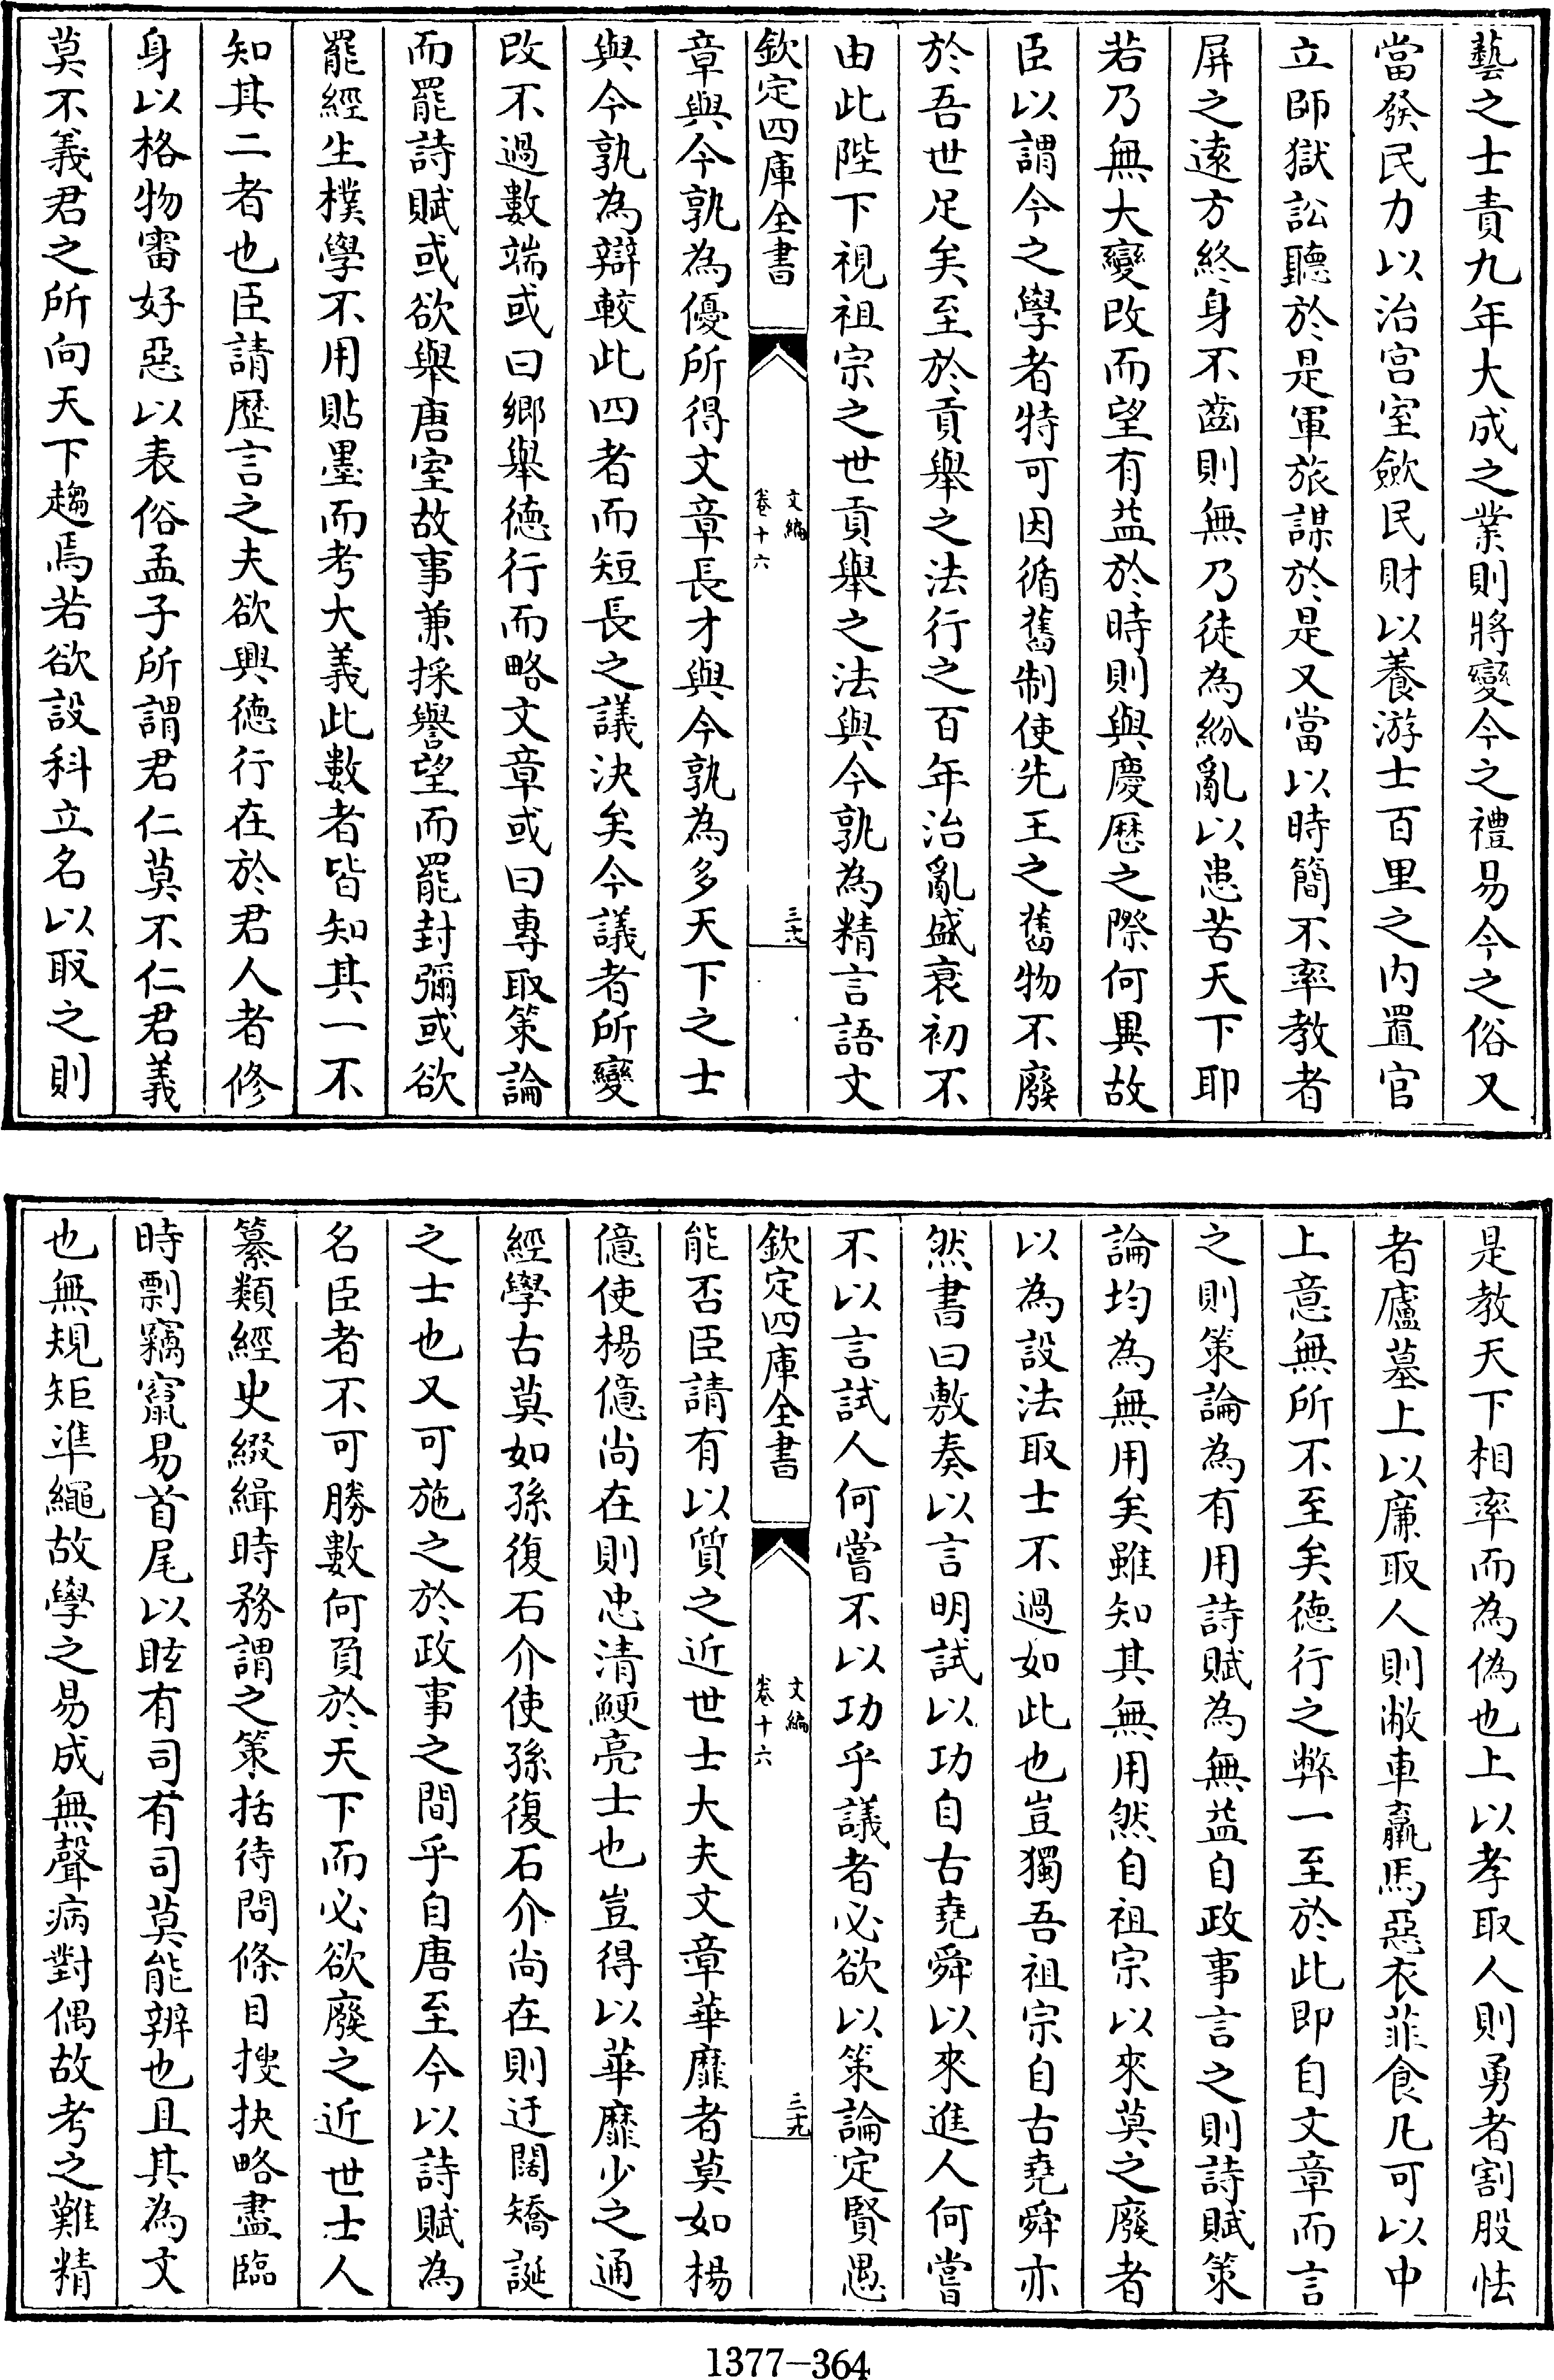 藝之士責九年大成之業則將變今之禮易今之俗又
當發民力以治宫室歛民財以養游士百里之内置官
立師獄訟聽於是軍旅謀於是又當以時簡不率教者
屏之逺方終身不齒則無乃徒為紛亂以患苦天下耶
若乃無大變改而望有益於時則與慶厯之際何異故
臣以謂今之學者特可因循舊制使先王之舊物不廢
於吾世足矣至於貢舉之法行之百年治亂盛衰初不
由此陛下視祖宗之世貢舉之法與今孰為精言語文
欽定四庫全書
文編
卷十六
三十八
章與今孰為優所得文章長才與今孰為多天下之士
與今孰為辯較此四者而短長之議決矣今議者所變
改不過數端或曰鄉舉德行而略文章或曰專取策論
而罷詩賦或欲舉唐室故事兼採譽望而罷封彌或欲
罷經生樸學不用貼墨而考大義此數者皆知其一不
知其二者也臣請歴言之夫欲興德行在於君人者修
身以格物審好惡以表俗孟子所謂君仁莫不仁君義
莫不義君之所向天下趨焉若欲設科立名以取之則
是教天下相率而為偽也上以孝取人則勇者割股怯
者廬墓上以廉取人則敝車羸馬惡衣菲食凡可以中
上意無所不至矣德行之弊一至於此即自文章而言
之則策論為有用詩賦為無益自政事言之則詩賦策
論均為無用矣雖知其無用然自祖宗以來莫之廢者
以為設法取士不過如此也豈獨吾祖宗自古堯舜亦
然書曰敷奏以言明試以功自古堯舜以來進人何嘗
不以言試人何嘗不以功乎議者必欲以策論定賢愚
欽定四庫全書
文編
卷十六
三十九
能否臣請有以質之近世士大夫文章華靡者莫如楊
億使楊億尚在則忠清鯁亮士也豈得以華靡少之通
經學古莫如孫復石介使孫復石介尚在則迂闊矯誕
之士也又可施之於政事之間乎自唐至今以詩賦為
名臣者不可勝數何負於天下而必欲廢之近世士人
纂類經史綴緝時務謂之策括待問條目搜抉略盡臨
時剽竊竄易首尾以眩有司有司莫能辨也且其為文
也無規矩凖繩故學之易成無聲病對偶故考之難精
1377—364